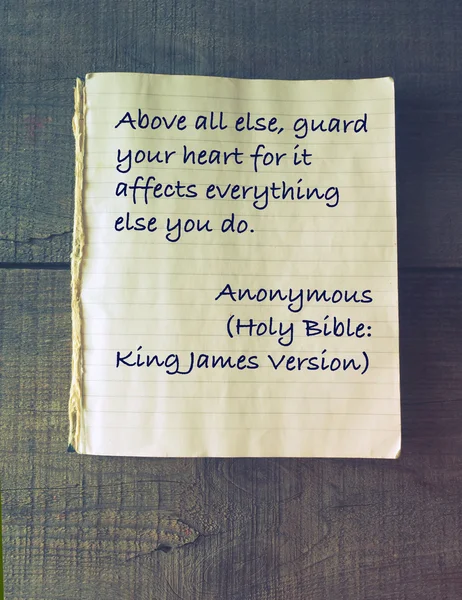 Above all else, guard
your heart for it
affects everything
else you do.
Anonymous
(Holy Bible:
King James Version)